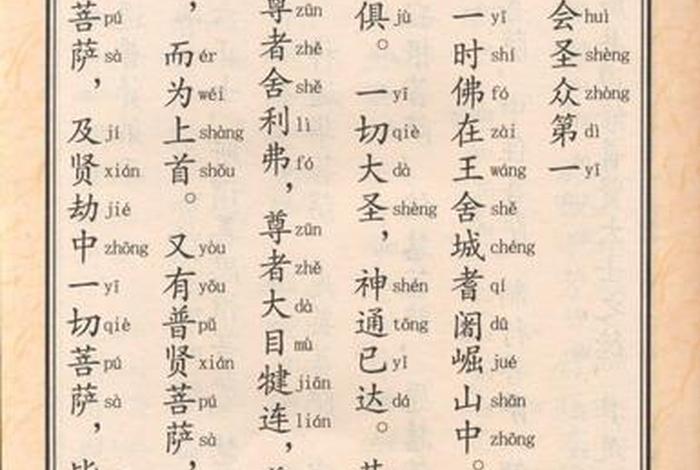 会huì圣shèng众zhòng第dì一yī
一yī时shí佛fó在zài王wáng舍shě城chéng耆qí阇dū崛jué山shān中zhōng。
俱jù。一yī切qiè大dà圣shèng，神shén通tōng已yǐ达dá。
尊zūn者zhě舍shě利lì弗fó，尊zūn者zhě大dà目mù犍jiān连lián，
，而ér为wéi上shàng首shǒu。又yòu有yǒu普pǔ贤xián菩pú萨sà，
菩pú萨sà，及jí贤xián劫jié中zhōng一yī切qiè菩pú萨sà，